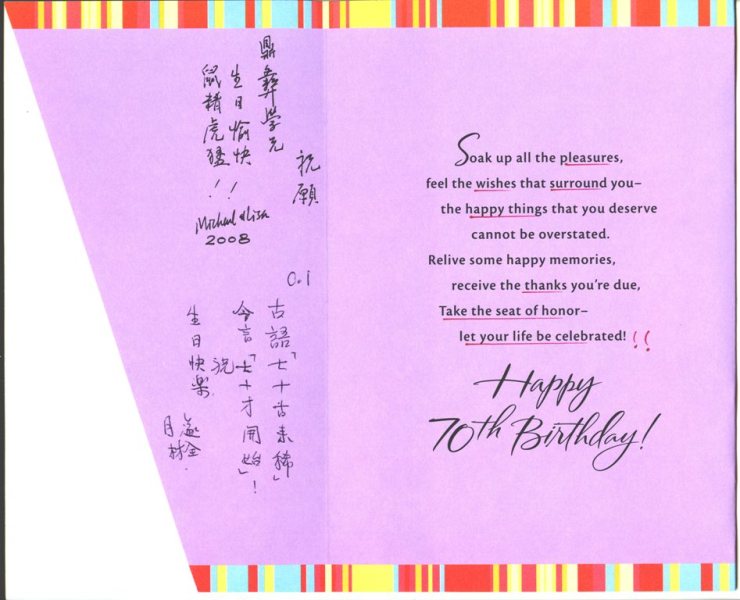 鼎彝學兄
祝願
生日愉快
鼠精虎猛!!
Michael & Lisa
2008
0.1
古語「七十古来稀」
今言「七十才開始」!
祝
生日快樂
Soak up all the pleasures,
feel the wishes that surround you–
the happy things that you deserve
cannot be overstated.
Relive some happy memories,
receive the thanks you're due,
Take the seat of honor–
let your life be celebrated! !!
Happy
70th Birthday!